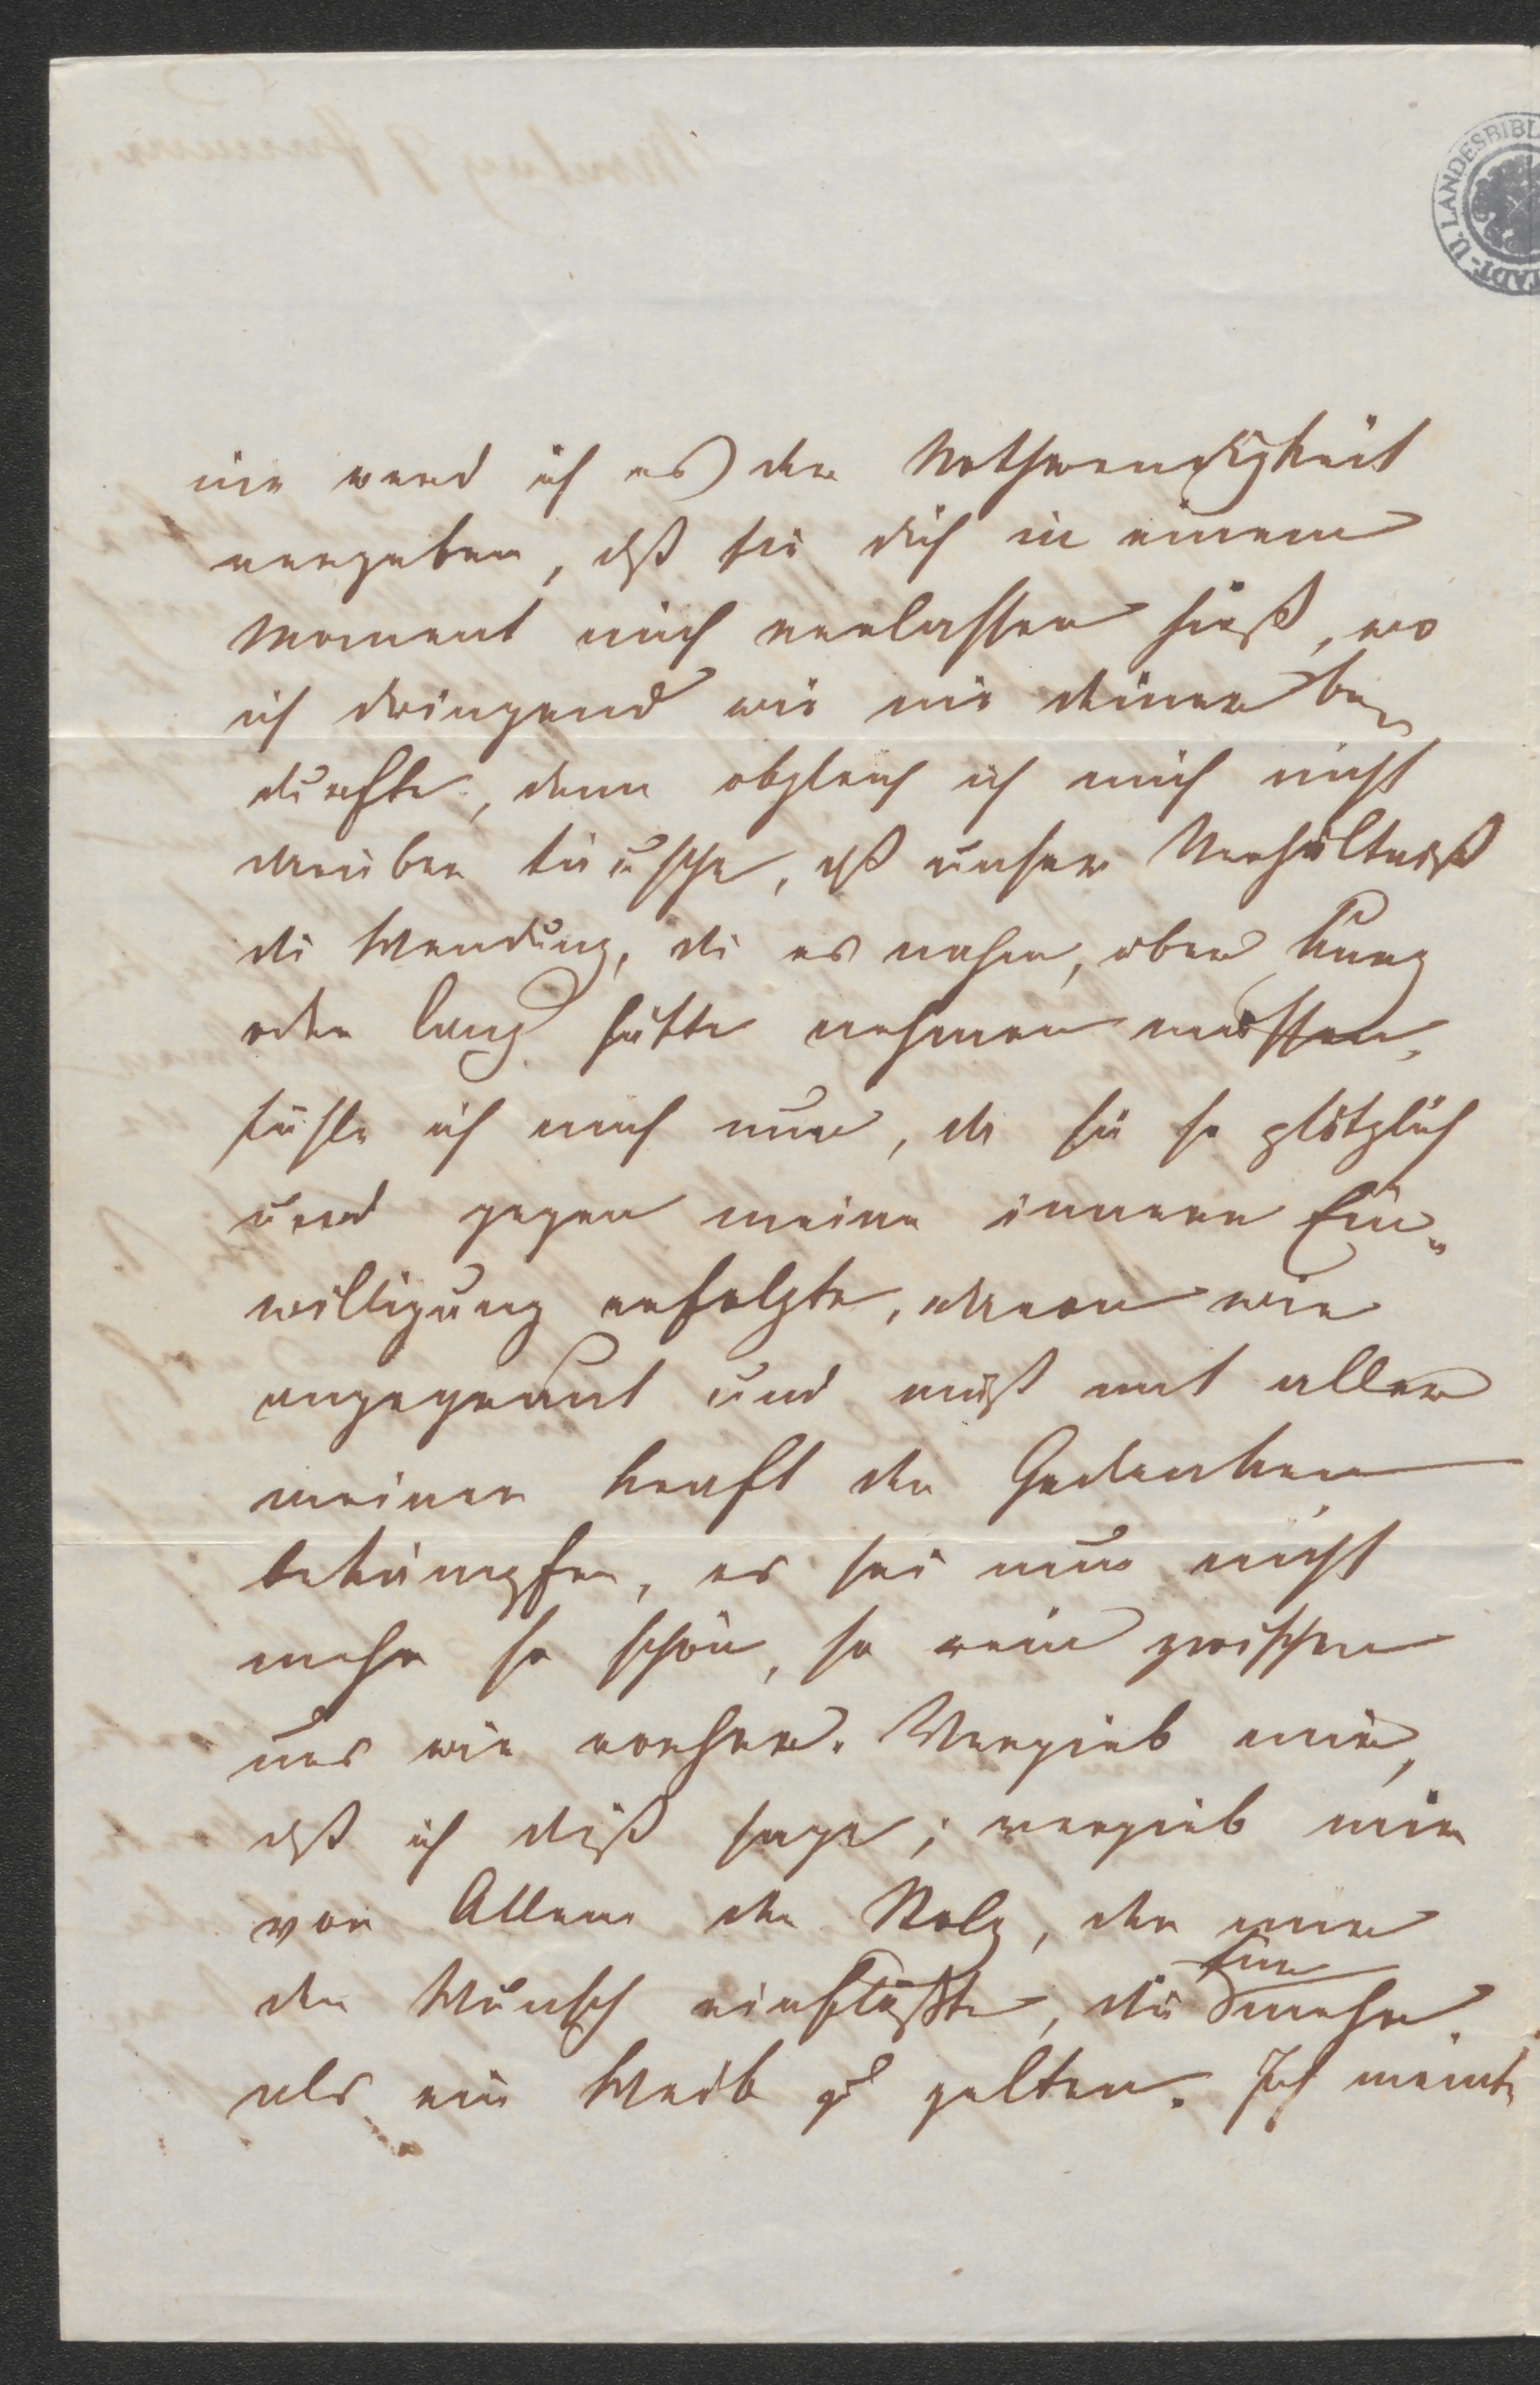 nie werd ich es der Nothwendigkeit
vergeben, dß sie dich in einem
Moment mich verlassen hieß, wo
ich dringend wie nie deiner be„
durfte, denn obgleich ich mich nicht
darüber täusche, dß unser Verhältniß
di Wendung, di es nahm, über kurz
oder lang hätte nehmen müssen,
fühle ich mich nun, da sie so plötzlich
und gegen meine innere Ein„
willigung erfolgte, davon wie
angegraut und muß mit aller
meiner Kraft den Gedanken
bekämpfen, es sei nun nicht
mehr so schön, so rein zwischen
uns wie vorher. Vergieb mir,
dß ich diß sage; vergieb mir
vor Allem den Stolz, der mir
den Wunsch einflößte, dir für mehr
als ein Weib zu gelten. Ich meinte
STADT- U. LANDESBIBL